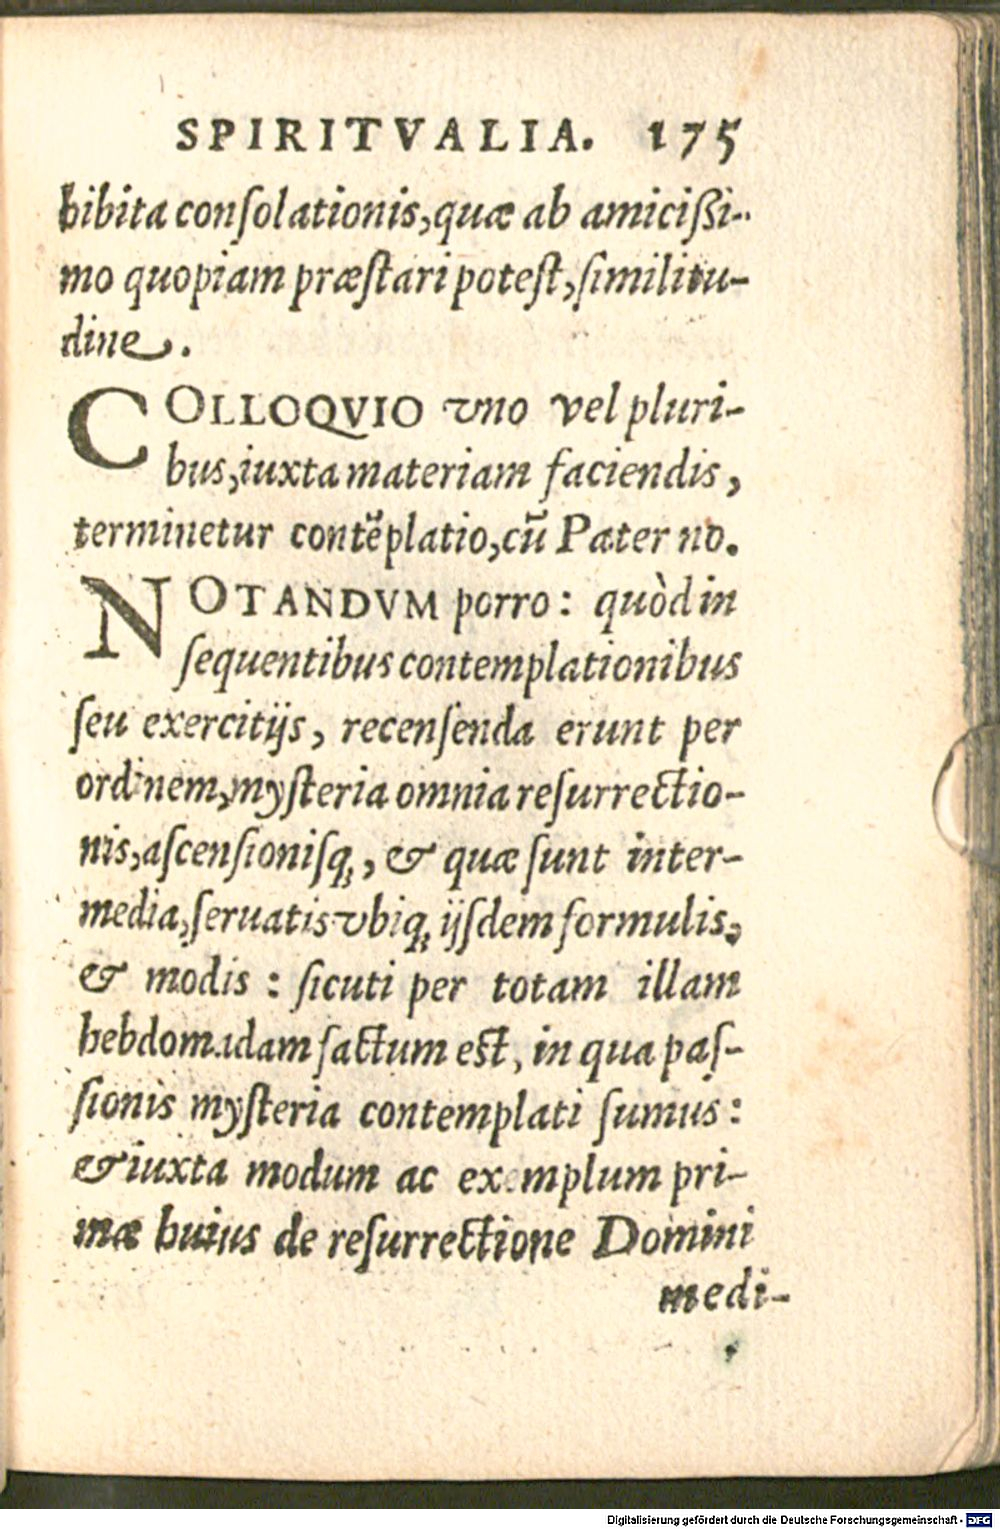 SPIRITVALIA. 175
hibita conſolationis, quæ ab amiciſſi-
mo quopiam præſtari poteſt, ſimilitu-
dine.
COLLOQVIO vno vel pluri-
bus, iuxta materiam faciendis,
terminetur contẽplatio, cũ Pater no.
NOTANDVM porro: quòd in
ſequentibus contemplationibus
ſeu exercitijs, recenſenda erunt per
ordinem, myſteria omnia reſurrectio-
nis, aſcenſionisq́;, & quæ ſunt inter-
media, ſeruatis vbiq; ijſdem formulis,
& modis: ſicuti per totam illam
hebdomadam factum eſt, in qua paſ-
ſionis myſteria contemplati ſumus:
& iuxta modum ac exemplum pri-
mæ huius de reſurrectione Domini
medi-
Digitalisierung gefördert durch die Deutsche Forschungsgemeinschaft - DFG